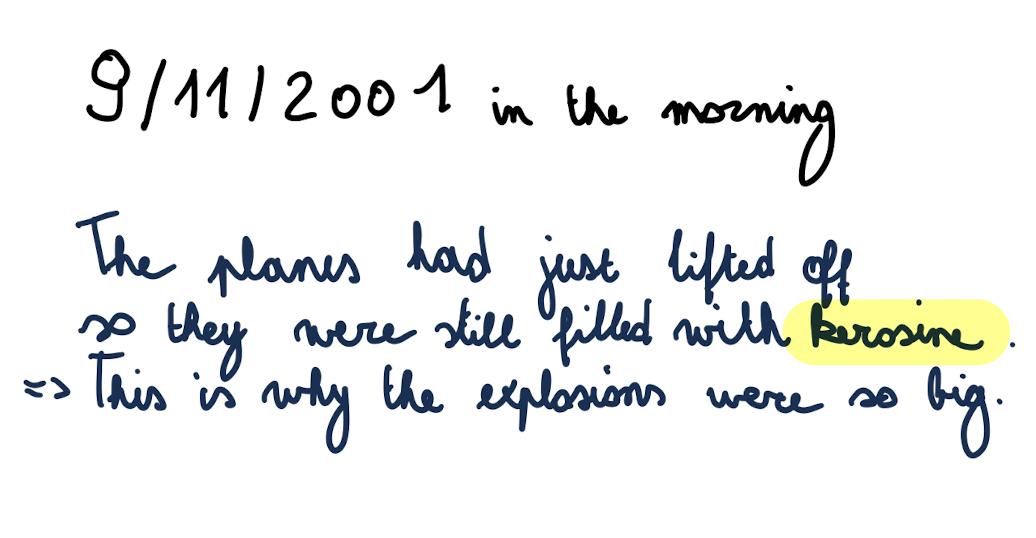 9/11/2001 in the morning
The planes had just lifted off
so they were still filled with kerosine.
=> This is why the explosions were so big.